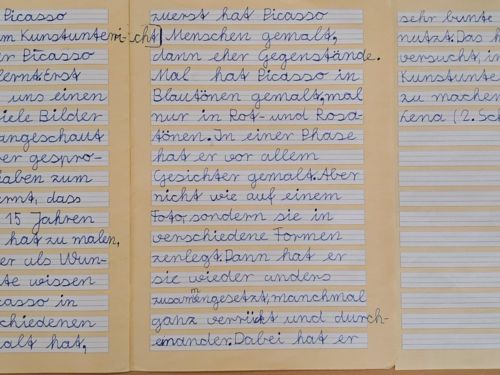 Picasso
m Kunstunterricht
er Picasso
lernt. Erst
uns einen
iele Bilder
angeschaut
er gespro-
aben zum
ernt, dass
15 Jahren
hat zu malen,
er als Wun-
te wissen
casso in
chiedenen
alt hat,
zuerst hat Picasso
Menschen gemalt,
dann eher Gegenstände.
Mal hat Picasso in
Blautönen gemalt, mal
nur in Rot- und Rosa-
tönen. In einer Phase
hat er vor allem
Gesichter gemalt. Aber
nicht wie auf einem
Foto, sondern sie in
verschiedene Formen
zerlegt. Dann hat er
sie wieder anders
zusammengesetzt, manchmal
ganz verrückt und durch-
einander. Dabei hat er
sehr bunte
nutzt. Das h
versucht, in
Kunstunte
zu machen
Lena (2. Sch